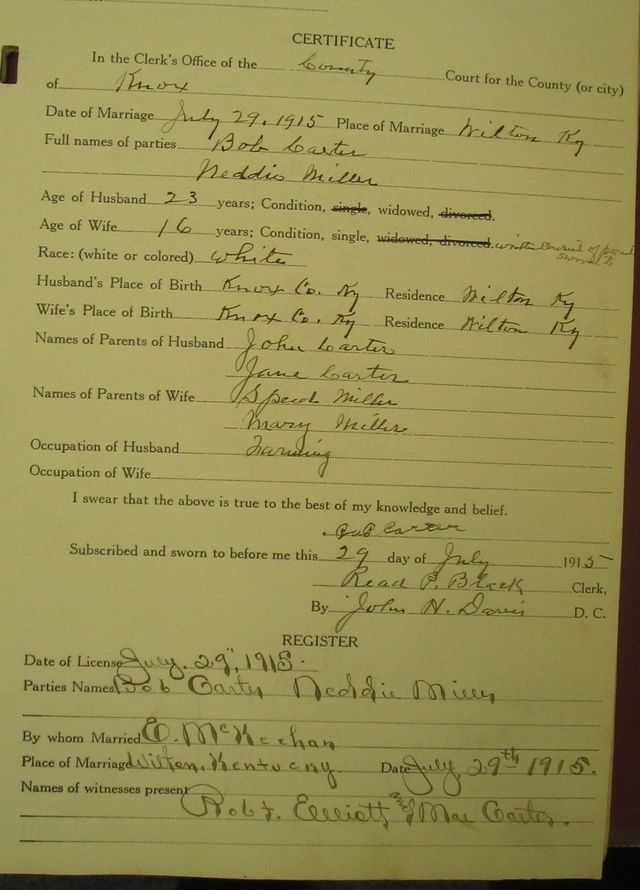 CERTIFICATE
In the Clerk's Office of the County Court for the County (or city)
of Knox
Date of Marriage July 29, 1915 Place of Marriage Wilton Ky
Full names of parties Bob Carter
Neddie Miller
Age of Husband 23 years; Condition, single, widowed, divorced.
Age of Wife 16 years; Condition, single, widowed, divorced. sworn to
Race: (white or colored) White
Husband's Place of Birth Knox Co. Ky Residence Wilton Ky
Wife's Place of Birth Knox Co. Ky Residence Wilton Ky
Names of Parents of Husband John Carter
Jane Carter
Names of Parents of Wife Speed Miller
Mary Miller
Occupation of Husband Farming
Occupation of Wife
I swear that the above is true to the best of my knowledge and belief.
Bob Carter
Subscribed and sworn to before me this 29 day of July 1915
Read P. Black Clerk,
By John H. Davis D. C.
REGISTER
Date of License July. 29", 1915.
Parties Names Bob Carter Neddie Miller
By whom Married E. McKeehan
Place of Marriage Wilton, Kentucky. Date July, 29th 1915.
Names of witnesses present Robt. Elliott and Mae Carter.